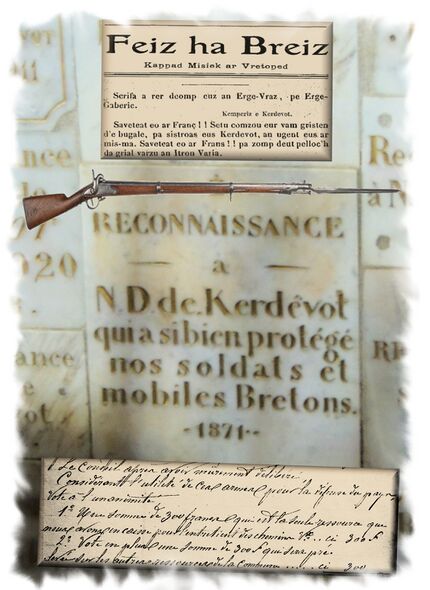 Feiz ha Breiz
Kappad Misiek ar Vretoped
Scrifa a rer deomp cuz an Erge-Vraz, pe Erge-
Gaberic.
Kemperiz e Kerdevot.
Saveteat eo ar Franç!! Setu comzou eur vam gristen
d'e bugale, pa sistroas eus Kerdevot, an ugent eus ar
mis-ma. Saveteat eo ar Frans!! pa zomp deut pelloc'h
da grial varzu an Itron Varia.
RECONNAISSANCE
à
N.D. de Kerdévot
qui a si bien protégé
nos soldats et
mobiles Bretons.
-1871-
Le Conseil après avoir mûrement délibéré
Considérant l'utilité de ces armes pour la défense du pays
Vote à l'unanimité
1° Une somme de 300 francs qui est la seule ressource que
nous avons en caisse pour l'entretien des chemins Vx ... ci 300 F
2° Vote en plus une somme de 300 F qui sera pré
levée sur les autres ressources de la commune ... ci 300